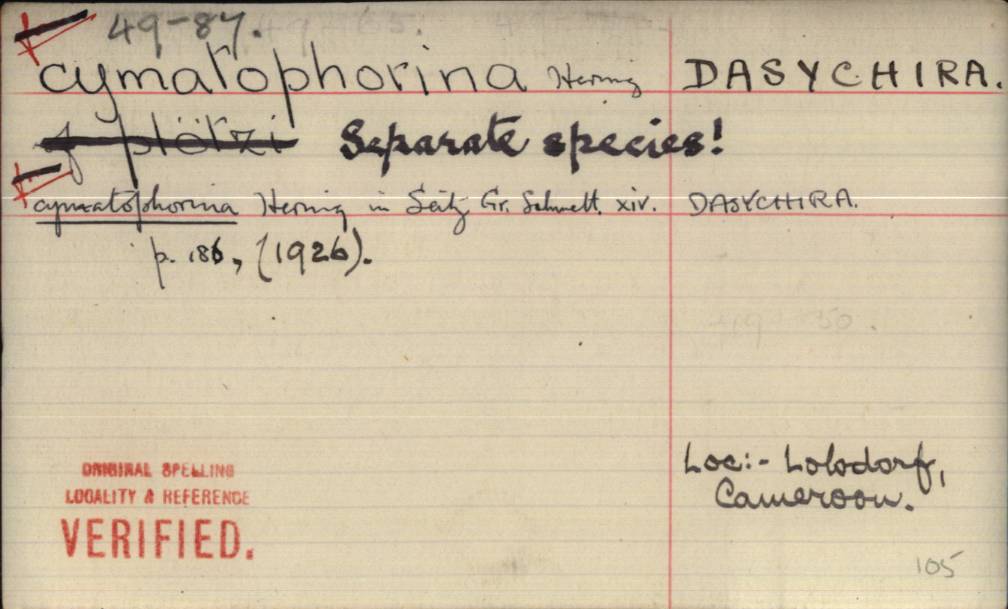 49-87.
cymatophorina Hering DASYCHIRA.
f plötzi Separate species!
cymatophorina Hering in Seitz Gr. Schmett. xiv. DASYCHIRA.
p. 186, (1926).
Loc:- Lolodorf,
Cameroon.
ORIGINAL SPELLING
LOCALITY & REFERENCE
VERIFIED.
105